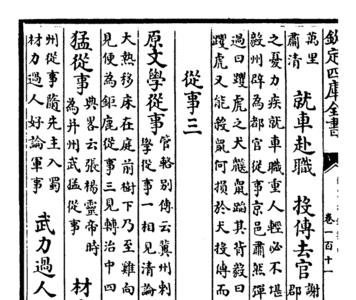 欽定四庫全書
卷一百十一
萬里
肅清
就車赴職
投傳去官
謝
郡
之憂力疾就車職重人輕必不堪
毅州辟為都官從事京邑肅然彈
過曰躍虎之犬鼷鼠蹈其背毅曰
躍虎又能殺鼠何損於犬投傳而
從事三
原文學從事
管輅別傳云冀州刺
學從事一相見清論
大熱移床在庭前樹下乃至雞向
見便為鉅鹿從事三見轉治中四
猛從事
典畧云張楊靈帝時
為并州武猛從事
材
州從事隨先主入蜀
材力過人好論軍事
武力過人